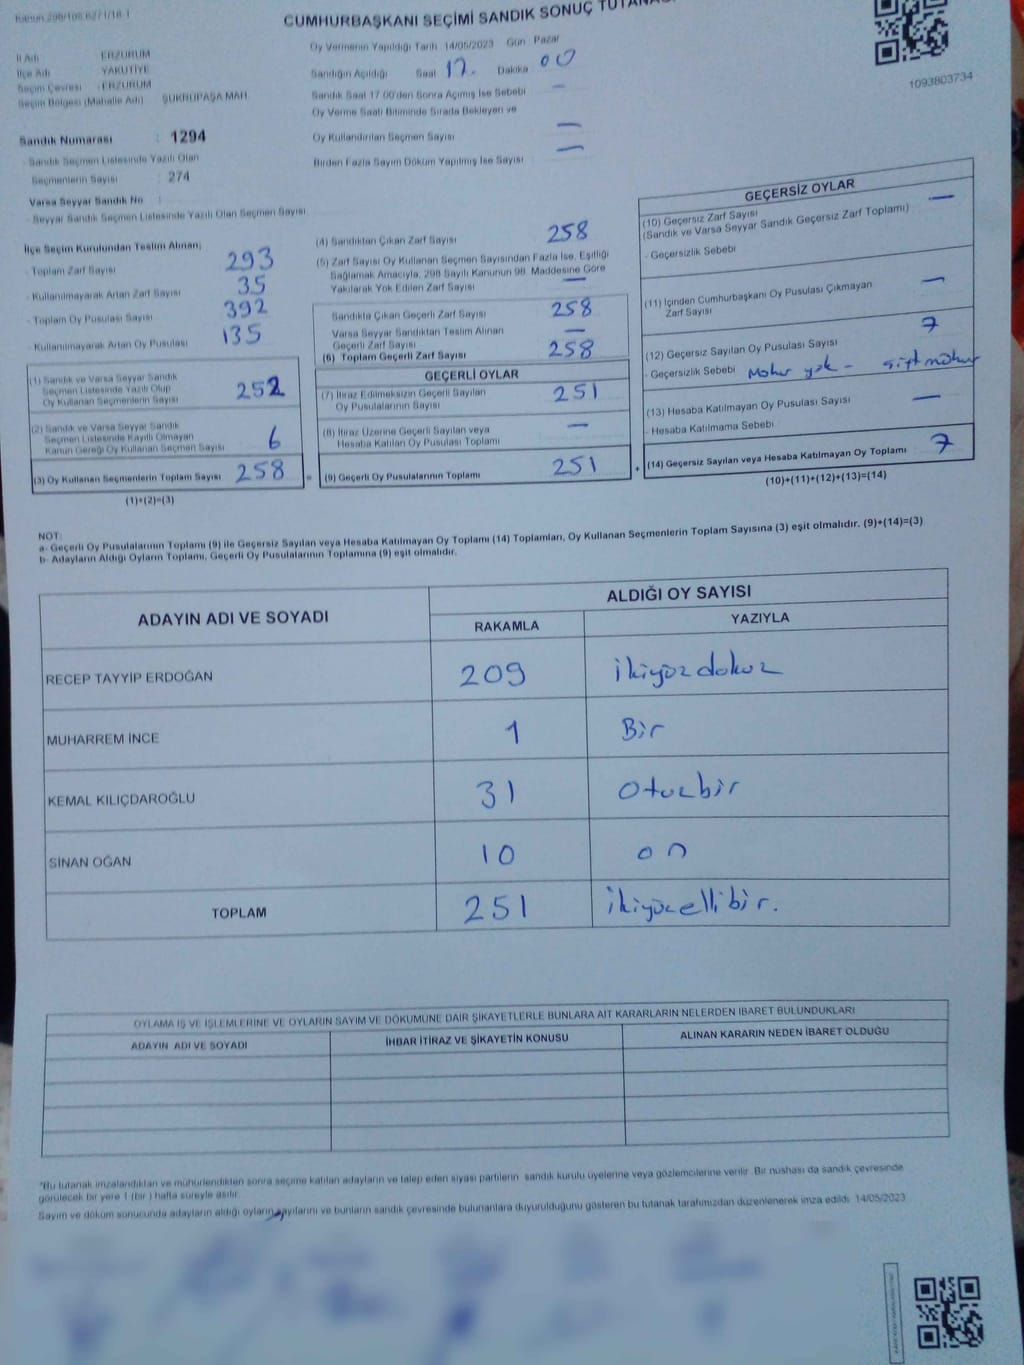 CUMHURBAŞKANI SEÇİMİ SANDIK SONUÇ
İl Adı ERZURUM
İlçe Adı YAKUTİYE
Seçim Çevresi : ERZURUM
Seçim Bölgesi (Mahalle Adı) ŞÜKRÜPAŞA MAH.
Sandık Numarası : 1294
Sandık Seçmen Listesinde Yazılı Olan
Seçmenlerin Sayısı : 274
Varsa Seyyar Sandık No :
- Seyyar Sandık Seçmen Listesinde Yazılı Olan Seçmen Sayısı
Oy Vermenin Yapıldığı Tarih 14/05/2023 Gün Pazar
Sandığın Açıldığı Saat 17. Dakika 00
Sandık Saat 17:00'den Sonra Açılmış İse Sebebi —
Oy Verme Saati Bitiminde Sırada Bekleyen ve
Oy Kullandırılan Seçmen Sayısı —
Birden Fazla Sayım Döküm Yapılmış İse Sayısı —
1093803734
İlçe Seçim Kurulundan Teslim Alınan;
- Toplam Zarf Sayısı 293
- Kullanılmayarak Artan Zarf Sayısı 35
- Toplam Oy Pusulası Sayısı 392
- Kullanılmayarak Artan Oy Pusulası 135
(1) Sandık ve Varsa Seyyar Sandık
Seçmen Listesinde Yazılı Olup
Oy Kullanan Seçmenlerin Sayısı 252
(2) Sandık ve Varsa Seyyar Sandık
Seçmen Listesinde Kayıtlı Olmayan
Kanun Gereği Oy Kullanan Seçmen Sayısı 6
(3) Oy Kullanan Seçmenlerin Toplam Sayısı 258
(1)+(2)=(3)
(4) Sandıktan Çıkan Zarf Sayısı 258
(5) Zarf Sayısı Oy Kullanan Seçmen Sayısından Fazla İse, Eşitliği
Sağlamak Amacıyla, 298 Sayılı Kanunun 98. Maddesine Göre
Yakılarak Yok Edilen Zarf Sayısı —
Sandıkta Çıkan Geçerli Zarf Sayısı 258
Varsa Seyyar Sandıktan Teslim Alınan
Geçerli Zarf Sayısı —
(6) Toplam Geçerli Zarf Sayısı 258
GEÇERLİ OYLAR
(7) İtiraz Edilmeksizin Geçerli Sayılan
Oy Pusulalarının Sayısı 251
(8) İtiraz Üzerine Geçerli Sayılan veya
Hesaba Katılan Oy Pusulası Toplamı —
= (9) Geçerli Oy Pusulalarının Toplamı 251
GEÇERSİZ OYLAR
(10) Geçersiz Zarf Sayısı —
(Sandık ve Varsa Seyyar Sandık Geçersiz Zarf Toplamı)
- Geçersizlik Sebebi
(11) İçinden Cumhurbaşkanı Oy Pusulası Çıkmayan
Zarf Sayısı —
(12) Geçersiz Sayılan Oy Pusulası Sayısı 7
- Geçersizlik Sebebi Mühür yok - çift mühür
(13) Hesaba Katılmayan Oy Pusulası Sayısı —
- Hesaba Katılmama Sebebi
+ (14) Geçersiz Sayılan veya Hesaba Katılmayan Oy Toplamı 7
(10)+(11)+(12)+(13)=(14)
NOT:
a- Geçerli Oy Pusulalarının Toplamı (9) ile Geçersiz Sayılan veya Hesaba Katılmayan Oy Toplamı (14) Toplamları, Oy Kullanan Seçmenlerin Toplam Sayısına (3) eşit olmalıdır. (9)+(14)=(3)
b- Adayların Aldığı Oyların Toplamı, Geçerli Oy Pusulalarının Toplamına (9) eşit olmalıdır.
ADAYIN ADI VE SOYADI ALDIĞI OY SAYISI
RAKAMLA YAZIYLA
RECEP TAYYİP ERDOĞAN 209 ikiyüzdokuz
MUHARREM İNCE 1 Bir
KEMAL KILIÇDAROĞLU 31 Otuzbir
SİNAN OĞAN 10 on
TOPLAM 251 ikiyüzellibir.
OYLAMA İŞ VE İŞLEMLERİNE VE OYLARIN SAYIM VE DÖKÜMÜNE DAİR ŞİKAYETLERLE BUNLARA AİT KARARLARIN NELERDEN İBARET BULUNDUKLARI
ADAYIN ADI VE SOYADI İHBAR İTİRAZ VE ŞİKAYETİN KONUSU ALINAN KARARIN NEDEN İBARET OLDUĞU
*Bu tutanak imzalandıktan ve mühürlendikten sonra seçime katılan adayların ve talep eden siyasi partilerin sandık kurulu üyelerine veya gözlemcilerine verilir. Bir nüshası da sandık çevresinde
görülecek bir yere 1 (bir) hafta süreyle asılır.
Sayım ve döküm sonucunda adayların aldığı oyların sayılarını ve bunların sandık çevresinde bulunanlara duyurulduğunu gösteren bu tutanak tarafımızdan düzenlenerek imza edildi. 14/05/2023